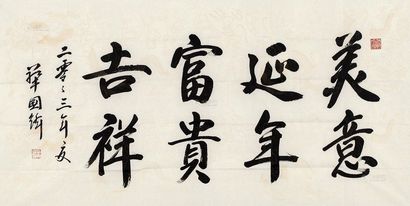 美意
延年
富貴
吉祥
二零零三年夏
華國鋒